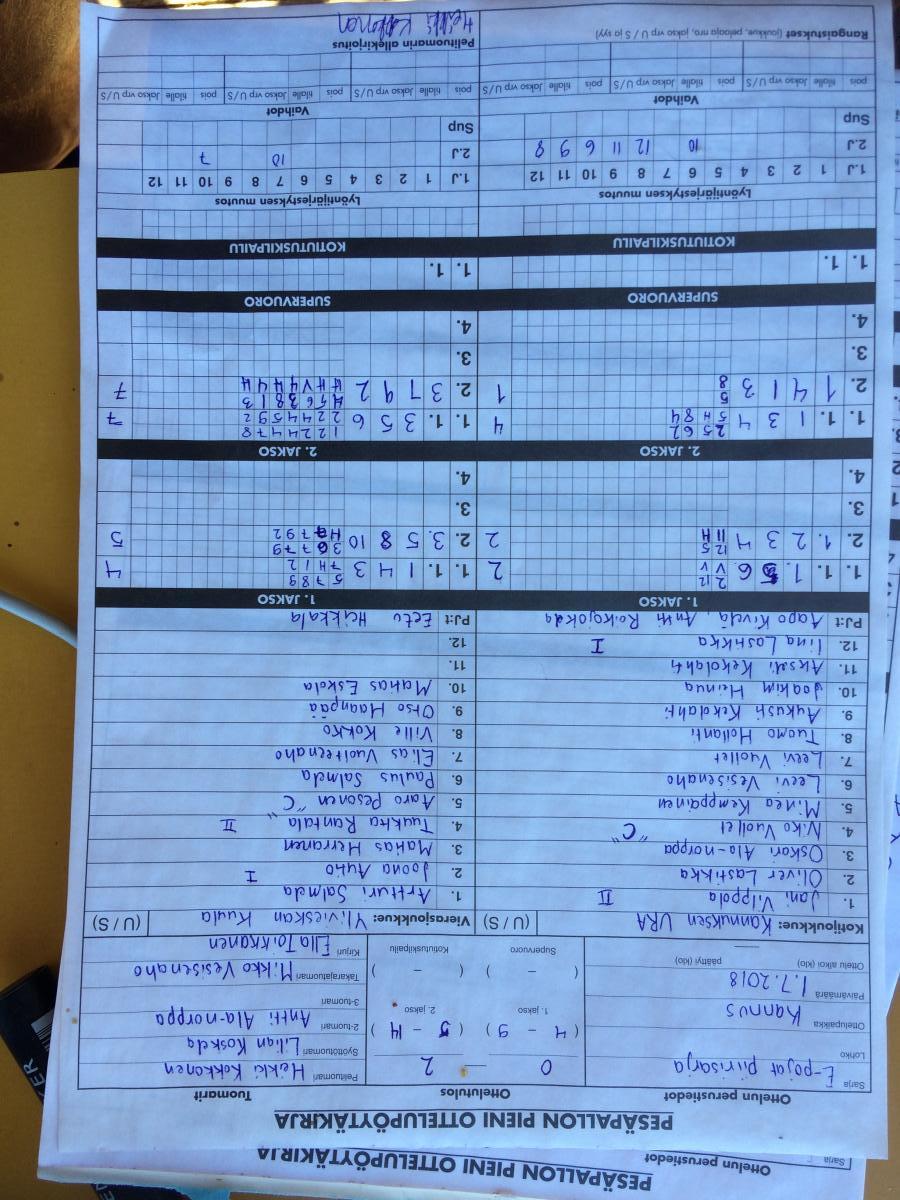 PESÄPALLON PIENI OTTELUPÖYTÄKIRJA
Ottelun perustiedot
Sarja
PESÄPALLON PIENI OTTELUPÖYTÄKIRJA
Ottelun perustiedot Ottelutulos Tuomarit
Sarja E-pojat piirisarja
Lohko
Ottelupaikka Kannus
Päivämäärä 1.7.2018
Ottelu alkoi (klo) päättyi (klo)
0 – 2
( 4 – 9 ) ( 5 – 14 )
1. jakso 2. jakso
( – ) ( – )
Supervuoro Kotiutuskilpailu
Pelituomari Heikki Kokkonen
Syöttötuomari Lilian Koskela
2-tuomari Antti Ala-norppa
3-tuomari
Takarajatuomari Mikko Vesisenaho
Kirjuri Ella Toikkanen
Kotijoukkue: Kannuksen URA (U / S)
1. Jani Vilppola II
2. Oliver Lastikka
3. Oskari Ala-norppa
4. Niko Vuollet "C"
5. Minea Kemppainen
6. Leevi Vesisenaho
7. Leevi Vuollet
8. Tuomo Hollanti
9. Aukusti Kekolahti
10. Joakim Heinua
11. Akseli Kekolahti
12. Iina Lastikka I
PJ:t Aapo Kivelä, Antti Roikojokda
Vierasjoukkue: Ylivieskan Kuula (U / S)
1. Artturi Salmela
2. Joona Aunio I
3. Matias Herranen
4. Tuukka Rantala II
5. Aaro Pesonen "C"
6. Paulus Salmela
7. Elias Vuolteenaho
8. Ville Kokko
9. Otso Haanpää
10. Matias Eskola
11.
12.
PJ:t Eetu Heikkala
1. JAKSO 1. JAKSO
1. 1. 1. 5 6 2 12 V V 2
2. 1. 2 3 4 12 5 11 H 2
3.
4.
1. 1. 1 4 3 5 7 8 9 7 H 1 2 4
2. 3. 5 8 10 3 6 7 7 9 5
3.
4.
2. JAKSO 2. JAKSO
1. 1. 1 3 4 2 5 6 2 5 H 8 4 4
2. 1 4 1 3 5 8 1
3.
4.
1. 1. 3 5 6 1 2 2 4 2 4 4 7 8 2 2 4 4 4 5 9 2 7
2. 3 7 9 2 7
3.
4.
SUPERVUORO SUPERVUORO
1. 1. 1. 1.
KOTIUTUSKILPAILU KOTIUTUSKILPAILU
Lyöntijärjestyksen muutos Lyöntijärjestyksen muutos
1.J 1 2 3 4 5 6 7 8 9 10 11 12
2.J 10 12 11 6 9 8
Sup
1.J 1 2 3 4 5 6 7 8 9 10 11 12
2.J 10 7
Sup
Vaihdot Vaihdot
pois tilalle Jakso vrp U/S pois tilalle Jakso vrp U/S pois tilalle Jakso vrp U/S
pois tilalle Jakso vrp U/S pois tilalle Jakso vrp U/S pois tilalle Jakso vrp U/S
Rangaistukset (joukkue, pelaaja nro, jakso vrp U / S ja syy)
Pelituomarin allekirjoitus
Heikki Kokkonen